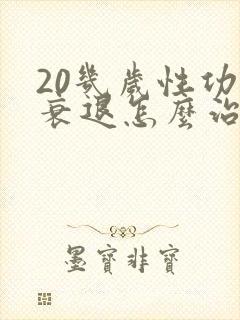 20幾歲性功
衰退怎麼治
墨寶非寶